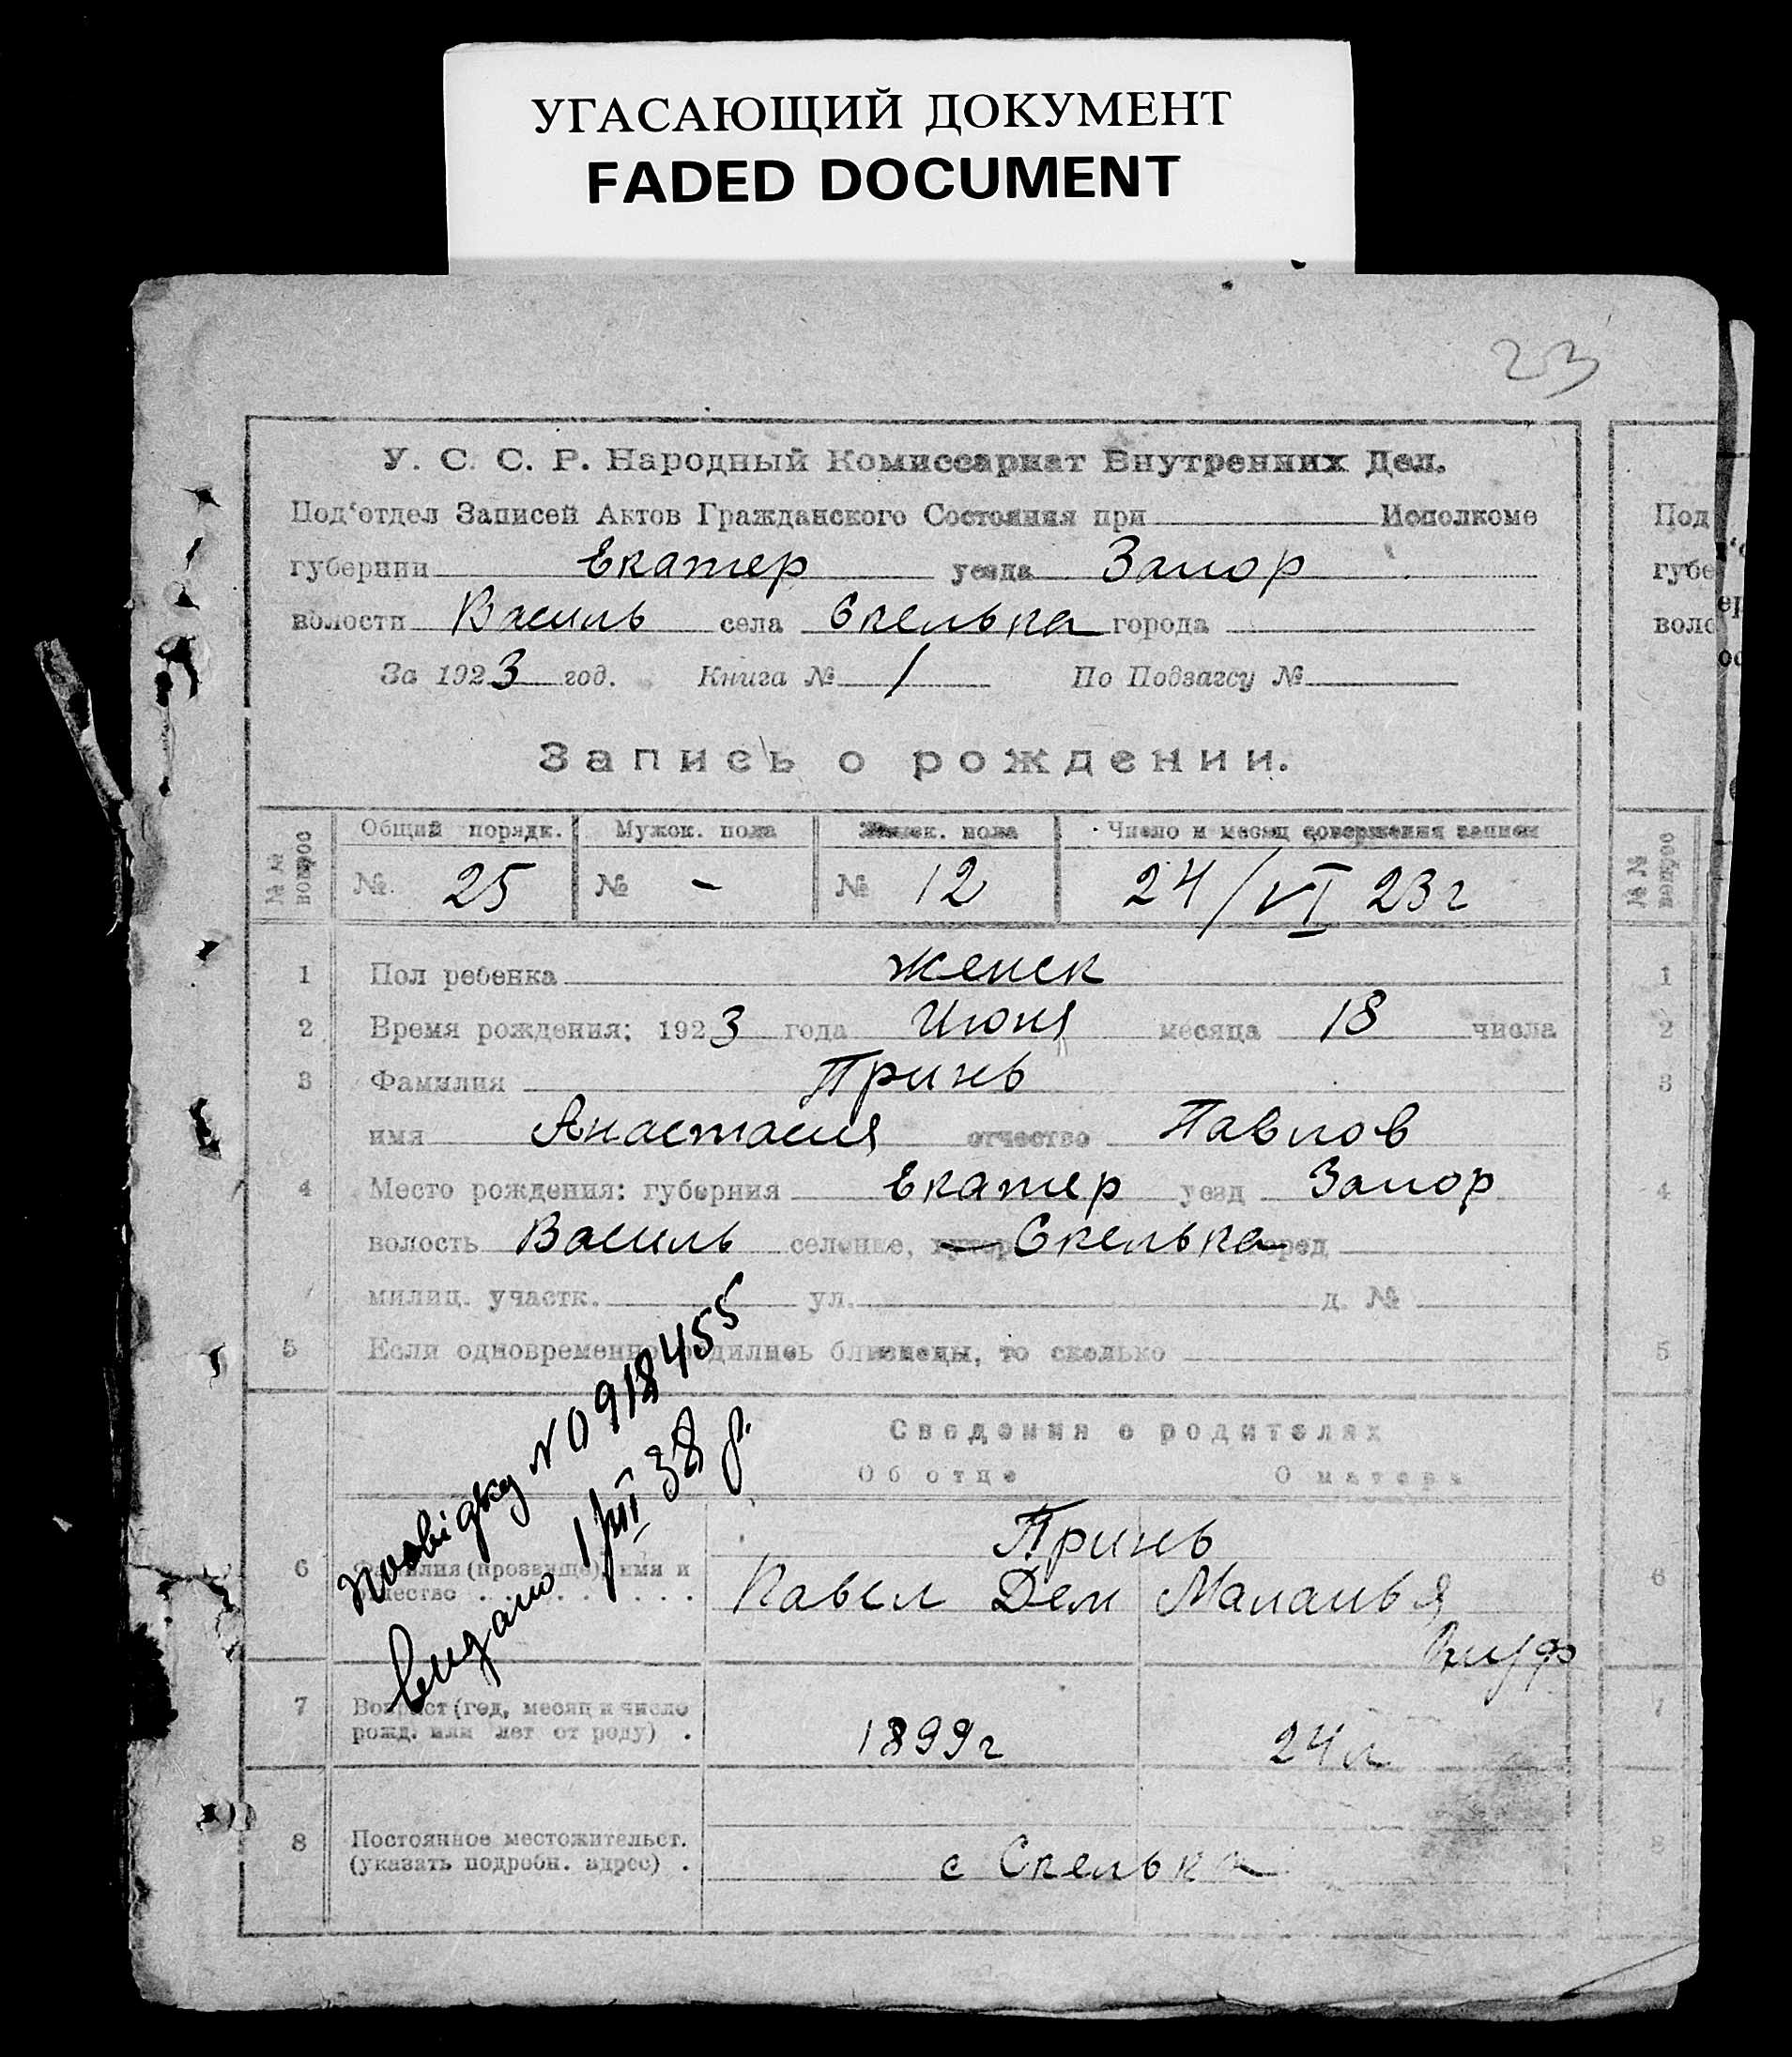 УГАСАЮЩИЙ ДОКУМЕНТ
FADED DOCUMENT
23
У. С. С. Р. Народный Комиссариат Внутренних Дел.
Под‘отдел Записей Актов Гражданского Состояния при Исполкоме
губернии Екатер уезда Запор
волости Василь села Скелька города
За 1923 год. Книга № 1 По Подзагсу №
Запись о рождении.
№ № вопрос Общий порядк. Мужск. пола Женск. пола Число и месяц совершения записи № № вопрос
№ 25 № - № 12 24/VI 23 г
1 Пол ребенка женск 1
2 Время рождения: 1923 года Июня месяца 18 числа 2
3 Фамилия Принь 3
имя Анастасия отчество Павлов
4 Место рождения: губерния Екатер уезд Запор 4
волость Василь селение, хутор Скелька город
милиц. участк. ул. д. №
5 Если одновременно родились близнецы, то сколько 5
Сведения о родителях
Об отце О матери
Принь
6 Фамилия (прозвище), имя и отчество Павел Дем Маланья 6
Посвідку № 0918455
видано 1/III 38 р.
7 Возраст (год, месяц и число рожд. или лет от роду) . 1899 г 24 л 7
8 Постоянное местожительст. (указать подробн. адрес) . с Скелька 8
Под
губе
воло